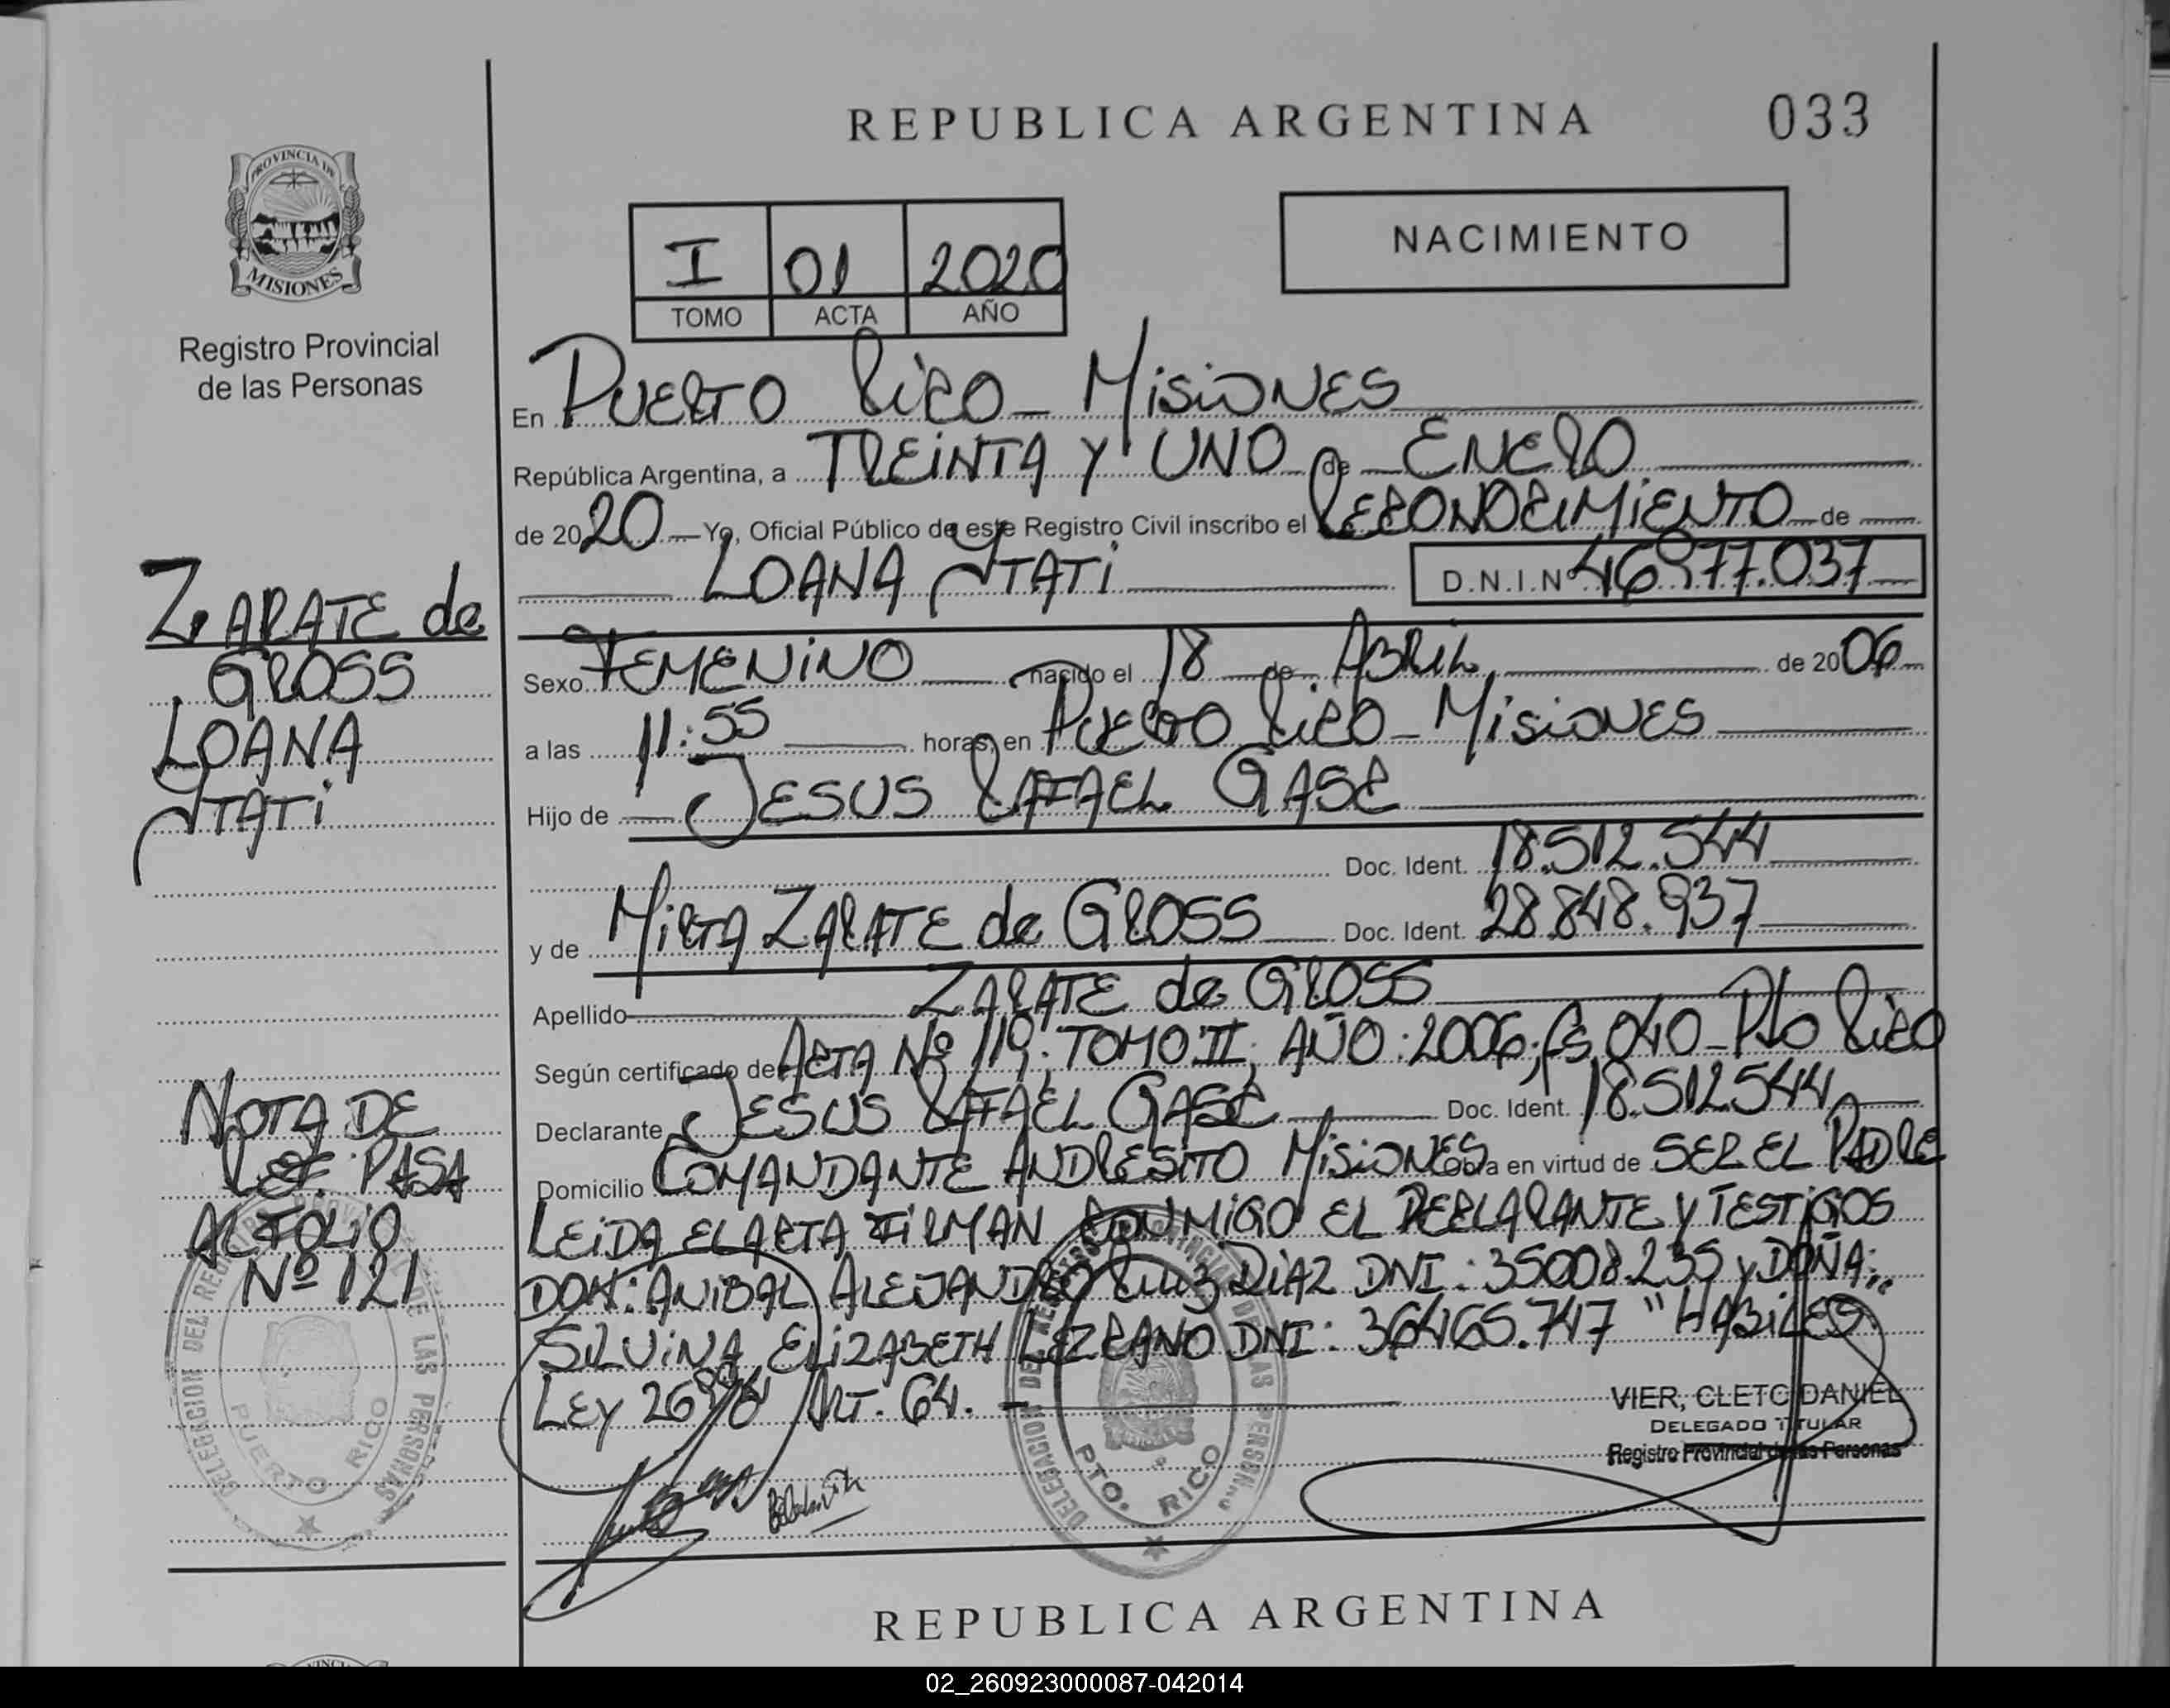 REPUBLICA ARGENTINA
033
PROVINCIA DE
MISIONES
Registro Provincial
de las Personas
I 01 2020
TOMO ACTA AÑO
NACIMIENTO
En PUERTO RICO - MISIONES
República Argentina, a TREINTA Y UNO de ENERO
de 2020 Yo, Oficial Público de este Registro Civil inscribo el RECONOCIMIENTO de
LOANA ITATI D.N.I.Nº 46.977.037
ZARATE de
GROSS
LOANA
ITATI
Sexo FEMENINO nacido el 18 de ABRIL de 2006
a las 11:55 horas, en PUERTO RICO - MISIONES
Hijo de JESUS RAFAEL GASE
Doc. Ident. 18.512.544
y de MIRTA ZARATE de GROSS Doc. Ident. 28.848.937
Apellido ZARATE de GROSS
Según certificado de ACTA Nº 119; TOMO II; AÑO: 2006; fs 040 - Pto RICO
Declarante JESUS RAFAEL GASE Doc. Ident. 18.512544
Domicilio COMANDANTE ANDRESITO MISIONES Obra en virtud de SER EL PADRE
LEIDA EL ACTA FIRMAN CONMIGO EL DECLARANTE Y TESTIGOS
DON: ANIBAL ALEJANDRO RUIZ DIAZ DNI: 35008.235 y DOÑA:
SILVINA ELIZABETH LEZCANO DNI: 36465.747 "HABILES
LEY 26 ART. 64.
NOTA DE
REF. PASA
AL FOLIO
Nº 121
VIER, CLETO DANIEL
DELEGADO TITULAR
Registro Provincial de las Personas
DELEGACION DEL REGISTRO PROVINCIAL DE LAS PERSONAS
PUERTO RICO
DELEGACION DEL REGISTRO PROVINCIAL DE LAS PERSONAS
PTO. RICO
REPUBLICA ARGENTINA
02_260923000087-042014